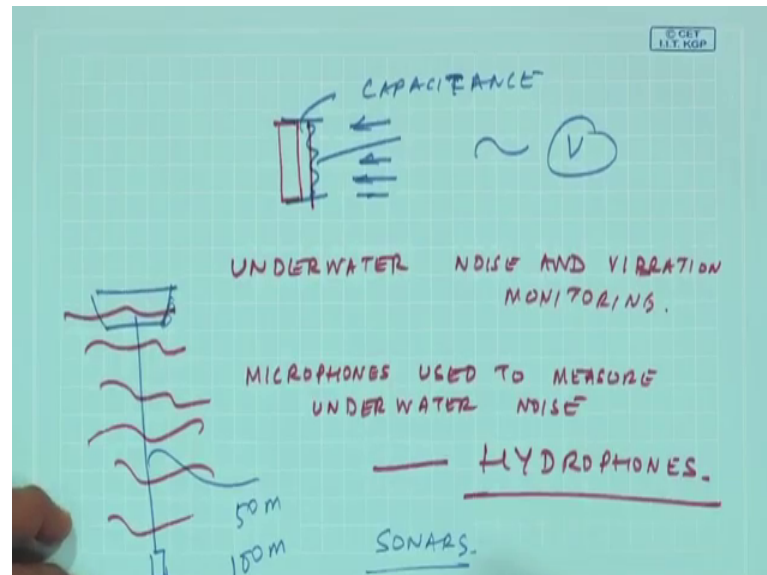 © CET
I.I.T. KGP
CAPACITANCE
V
UNDERWATER NOISE AND VIBRATION
MONITORING.
MICROPHONES USED TO MEASURE
UNDERWATER NOISE
— HYDROPHONES.
50M
100M
SONARS.